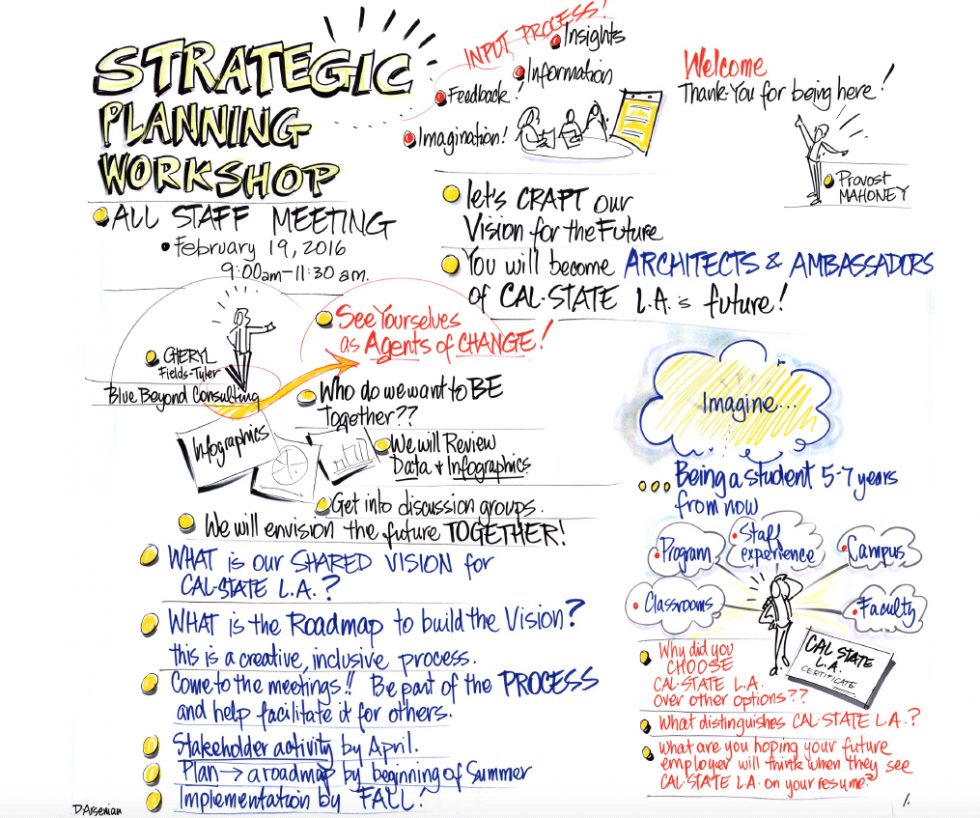 STRATEGIC
PLANNING
WORKSHOP
ALL STAFF MEETING
February 19, 2016
9:00am-11:30 am.
INPUT PROCESS!
Insights
Information
Feedback!
Imagination!
Welcome
Thank-You for being here!
Provost
MAHONEY
let's CRAFT our
Vision for the Future
You will become ARCHITECTS & AMBASSADORS
of CAL-STATE L.A.'s future!
CHERYL
Fields-Tyler
Blue Beyond Consulting
See Yourselves
as Agents of CHANGE!
Who do we want to BE
Together??
Infographics
We will Review
Data + Infographics
Get into discussion groups.
We will envision the future TOGETHER!
WHAT is our SHARED VISION for
CAL-STATE L.A.?
WHAT is the Roadmap to build the Vision?
this is a creative, inclusive process.
Come to the meetings!! Be part of the PROCESS
and help facilitate it for others.
Stakeholder activity by April.
Plan → a roadmap by beginning of Summer
Implementation by FALL.
D Arsenian
Imagine...
... Being a student 5-7 years
from now
Program
Staff
experience
Campus
Classrooms
Faculty
CAL STATE
L.A.
CERTIFICATE
Why did you
CHOOSE
CAL-STATE L.A.
over other options??
What distinguishes CAL-STATE L.A.?
What are you hoping your future
employer will think when they see
CAL-STATE L.A. on your resume?
1.